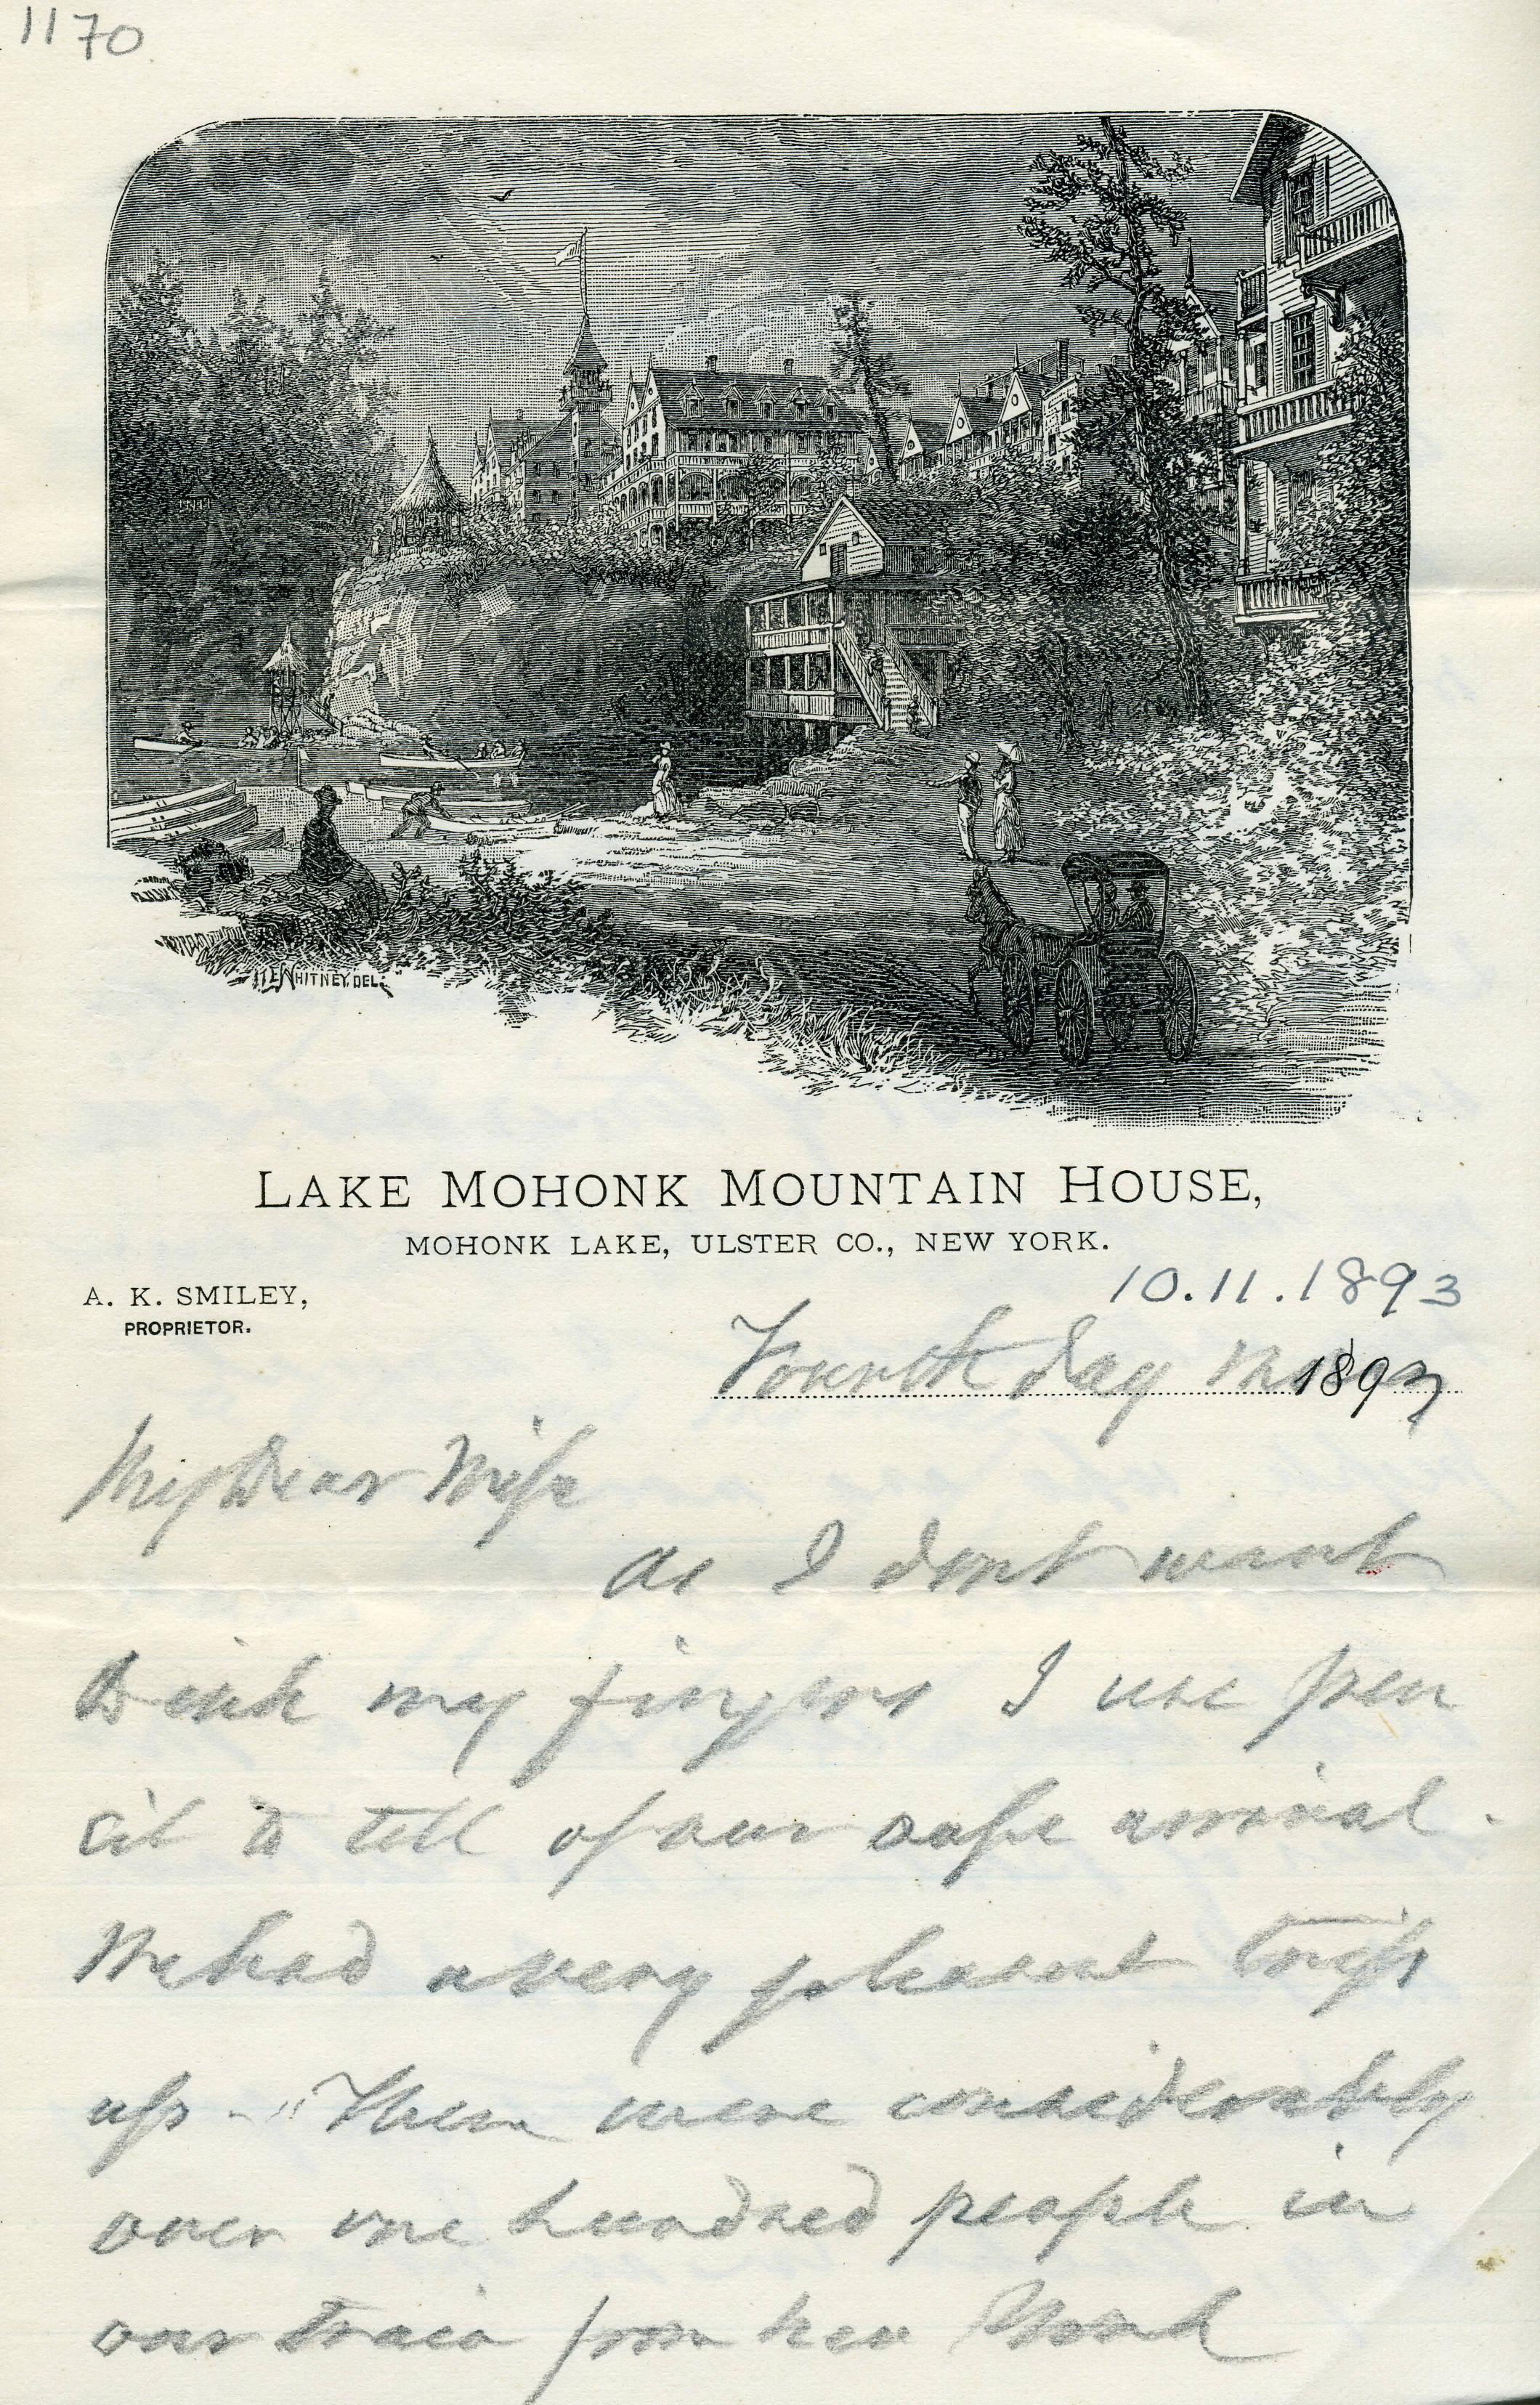 1170
WHITNEY. DEL.
LAKE MOHONK MOUNTAIN HOUSE,
MOHONK LAKE, ULSTER CO., NEW YORK.
A. K. SMILEY,
PROPRIETOR.
10.11.1893
Fourth day 189
My Dear Wife
as I dont want
to ink my fingers I use pen
cil to tell of our safe arrival.
We had a very pleasant trip
up - There were considerably
over one hundred people in
our train from New York